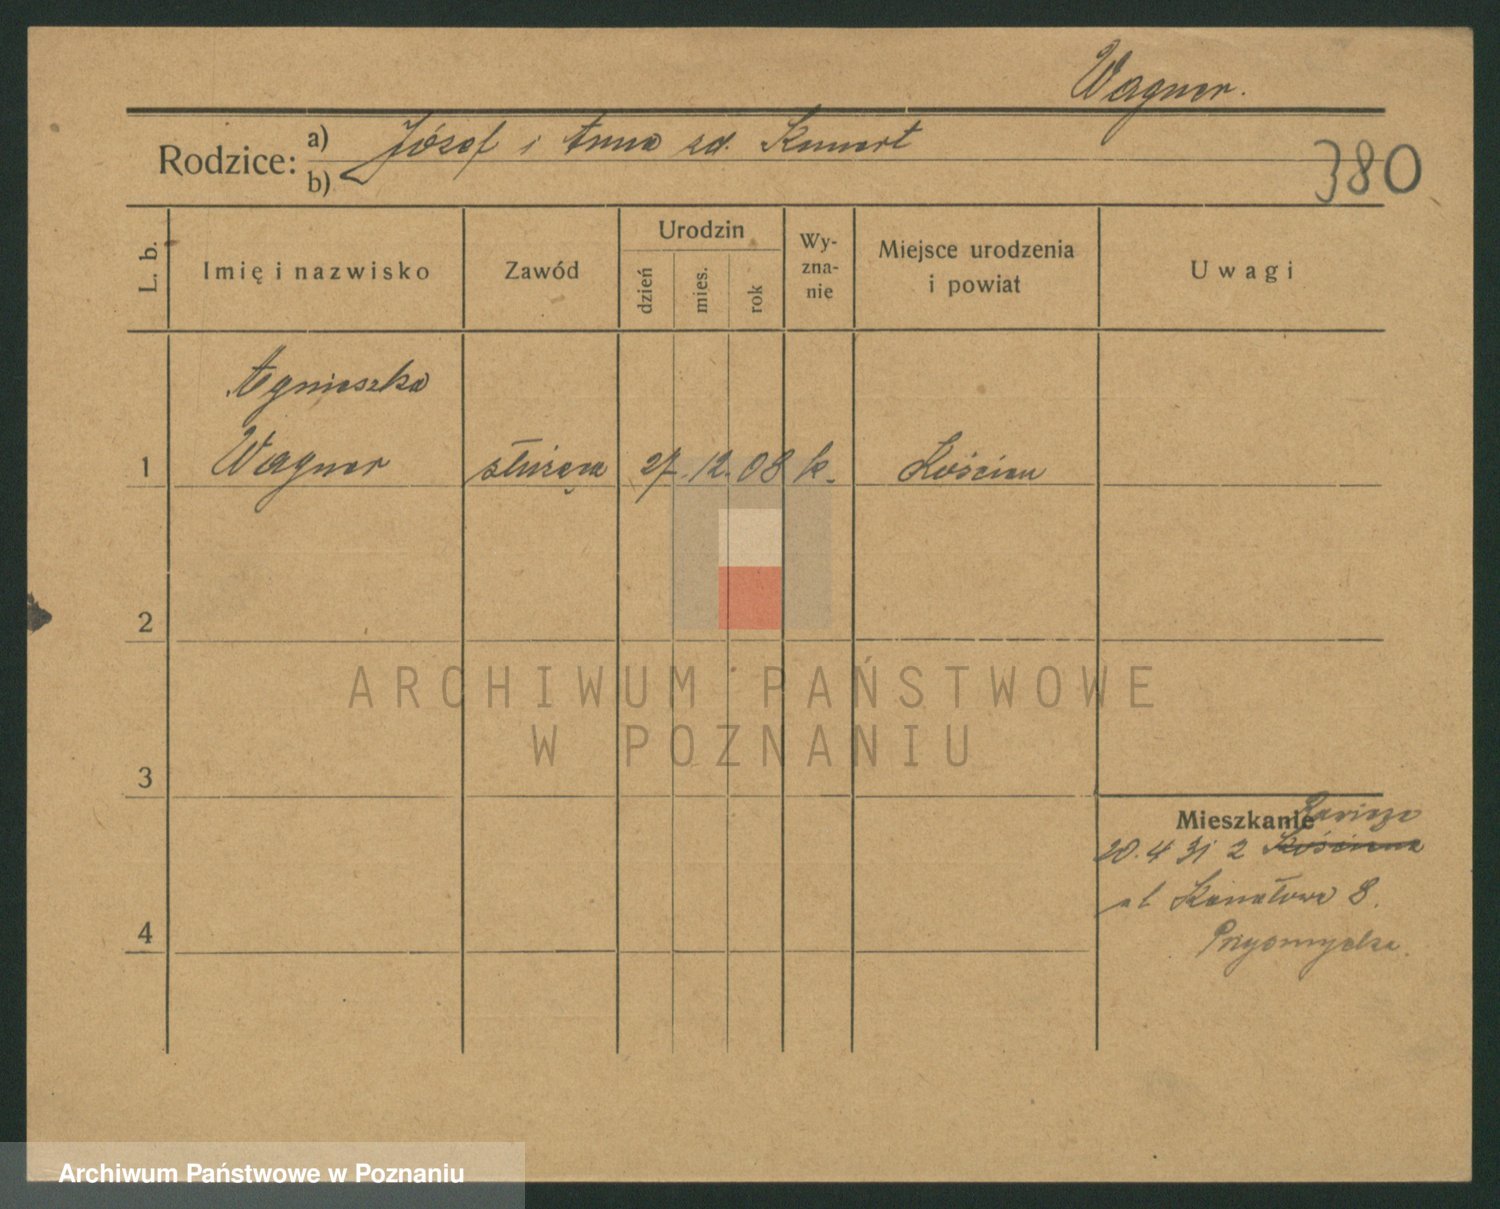 Wagner.
Rodzice: a) Józef i Anna zd. Kunert
b)
380
L. b.
Imię i nazwisko
Zawód
Urodzin
dzień
mies.
rok
Wy-
zna-
nie
Miejsce urodzenia
i powiat
Uwagi
Agnieszka
1 Wagner służąca 27. 12. 08 k. Kościan
2
3
4
Mieszkanie
20. 4 31 z Kościana
ul Kanałowa 8.
ARCHIWUM PAŃSTWOWE
W POZNANIU
Archiwum Państwowe w Poznaniu